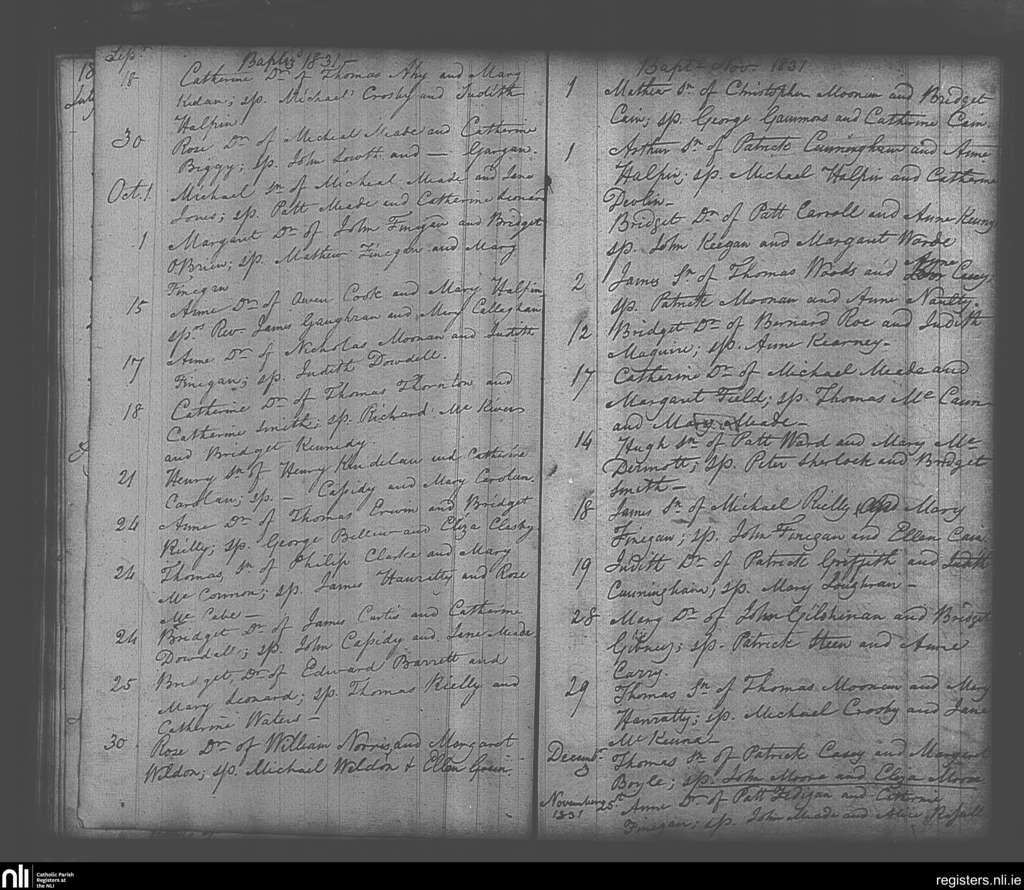 18
July
Sepr
Bapts 1831
18 Catherine Dr of Thomas Ahy and Mary
Kidan; sp. Michael Crosby and Judith
Halpin
30 Rose Dr of Micheal Meade and Catherine
Biggy; sp. John Lowth and — Gargan.
Oct. 1 Michael sn of Micheal Meade and Jane
Jones; sp. Patt Meade and Catherine Leonard
1 Margaret Dr of John Finegan and Bridget
O'Brien; sp. Mathew Finegan and Mary
Finegan
15 Anne Dr of Owen Cook and Mary Halpin
sprs Rev. James Gaughran and Mary Calleghan
17 Anne Dr of Nicholas Moonan and Judith
Finegan; sp. Judith Dowdell.
18 Catherine Dr of Thomas Thornton and
Catherine Smith; sp. Richard Mc Kiver
and Bridget Kennedy.
21 Henry sn of Henry Kindelan and Catherine
Carolan; sp. — Cassidy and Mary Carolan.
24 Anne Dr of Thomas Erwin and Bridget
Rielly; sp. George Bellew and Eliza Clesby
24 Thomas sn of Philip Clarke and Mary
Mc Connon; sp. James Hanratty and Rose
Mc Cabe —
24 Bridget Dr of James Curtis and Catherine
Dowdall; sp. John Cassidy and Jane Meade
25 Bridget Dr of Edward Barrett and
Mary Leonard; sp. Thomas Rielly and
Catherine Waters —
30 Rose Dr of William Norris and Margaret
Weldon; sp. Michael Weldon & Ellen
Bapts Nov 1831
1 Mathew Sn of Christopher Moonan and Bridget
Cain; sp. George Gammons and Catherine Cain.
1 Arthur Sn of Patrick Cunningham and Anne
Halpin; sp. Michael Halpin and Catherine
Devlin —
Bridget Dr of Patt Carroll and Anne Keung
sp. John Keegan and Margaret Warde
2 James Sn of Thomas Woods and Anne Casey;
sp. Patrick Moonan and Anne Naulty.
12 Bridget Dr of Bernard Roe and Judith
Maguire; sp. Anne Kearney —
17 Catherine Dr of Michael Meade and
Margaret Field; sp. Thomas Mc Cann
and Mary Meade —
14 Hugh sn of Patt Ward and Mary Mc
Dermott; sp. Peter Sherlock and Bridget
Smith —
18 James Sn of Michael Rielly and Mary
Finegan; sp. John Finegan and Ellen Cain
19 Judith Dr of Patrick Griffith and Judith
Cunningham; sp. Mary Loughran —
28 Mary Dr of John Gilshinan and Bridget
Gibney; sp. Patrick Steen and Anne
Carry.
29 Thomas Sn of Thomas Moonan and Mary
Hanratty; sp. Michael Crosby and Jane
Mc Keuna —
Decemb. 5 Thomas Sn of Patrick Casey and Margaret
Boyle; sp. John Moore and Eliza Moore
November 25th 1831 Anne Dr of Patt Fedigan and Catherine
Finegan; sp. John Meade and Alice Russell
nli Catholic Parish
Registers at
the NLI
registers.nli.ie